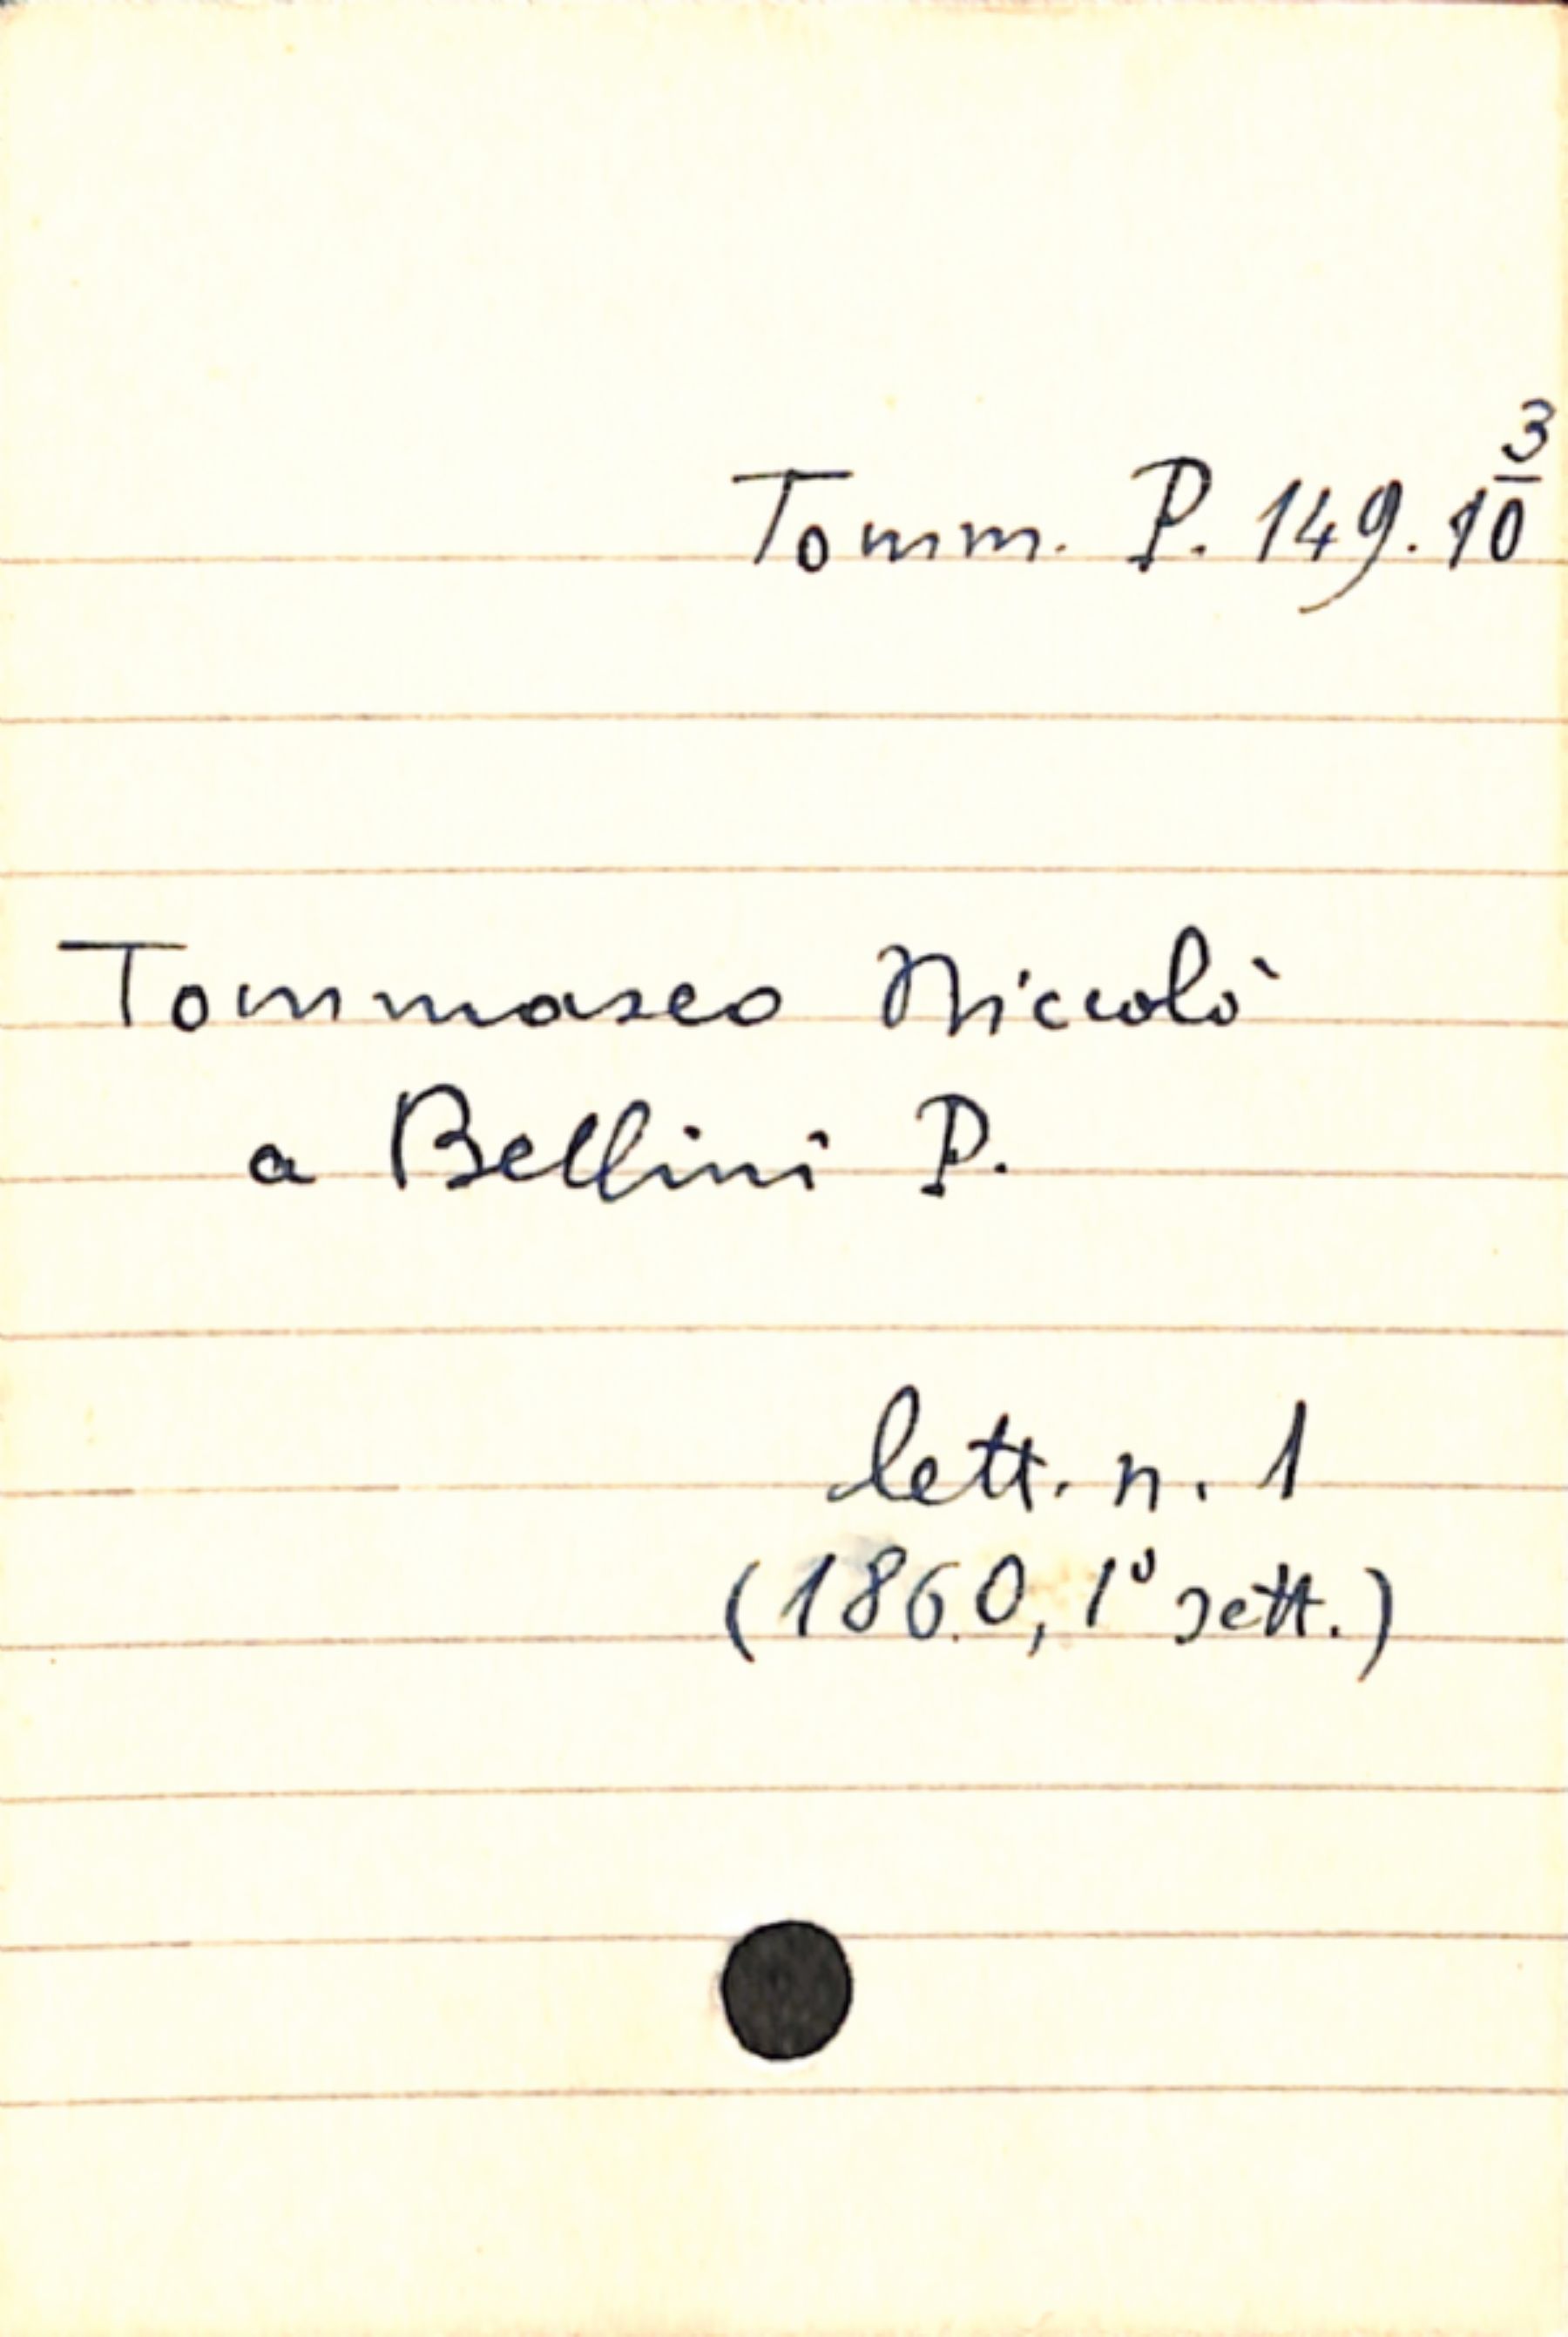 Tomm. P. 149. 10 3
Tommaseo Niccolò
a Bellini P.
lett. n. 1
(1860, 1º sett.)